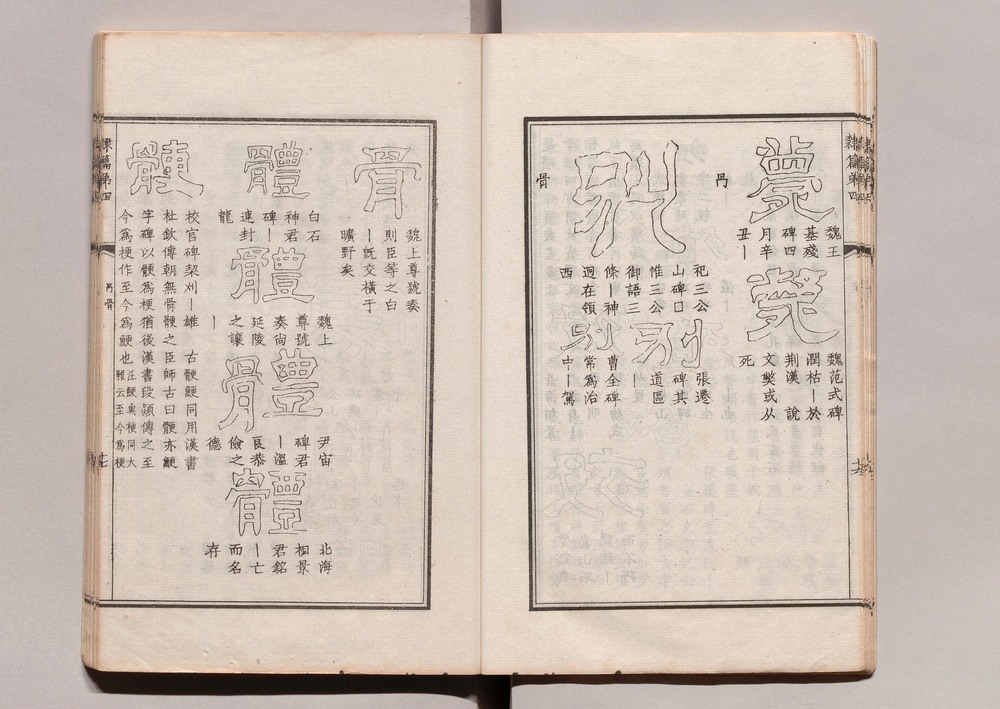 薨
魏王
基殘
碑四
月辛
丑丨
薨
魏范式碑
潤枯丨於
荆漢　說
文𡙁或从
死
冎
別
祀三公
山碑口
惟三公
御語三
條丨神
迥在領
西
別
張遷
碑其
道區
別
曹全碑
常為治
中丨駕
骨
骨
魏上尊號奏
則臣等之白
丨旣交橫于
曠野矣
體
白石
神君
碑丨
連封
龍
體
魏上
尊號
奏尙
延陵
之讓
丨
體
尹宙
碑君
丨溫
良恭
儉之
德
體
北海
相景
君銘
丨亡
而名
存
骾
校官碑栔刈丨雄　古骾鯁同用漢書
杜欽傳朝無骨骾之臣師古曰骾亦鯁
字碑以骾爲梗猶後漢書段熲傳之至
今爲梗作至今爲鯁也注鯁與梗同大
雅云至今爲梗
隸篇第四
冎骨